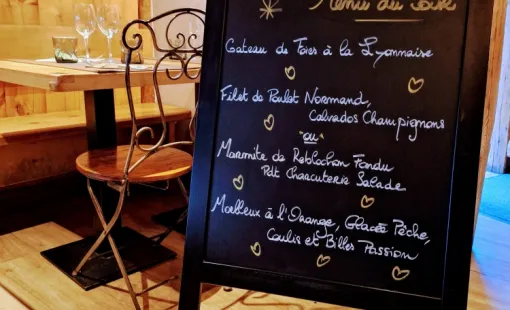 Menu du Soir
Gateau de Foies à la Lyonnaise
Filet de Poulet Normand,
Calvados Champignons
"ou"
Marmite de Reblochon Fondu
Pdt Charcuterie Salade
Moelleux à l'Orange, Glacée Pêche,
Coulis et Billes Passion